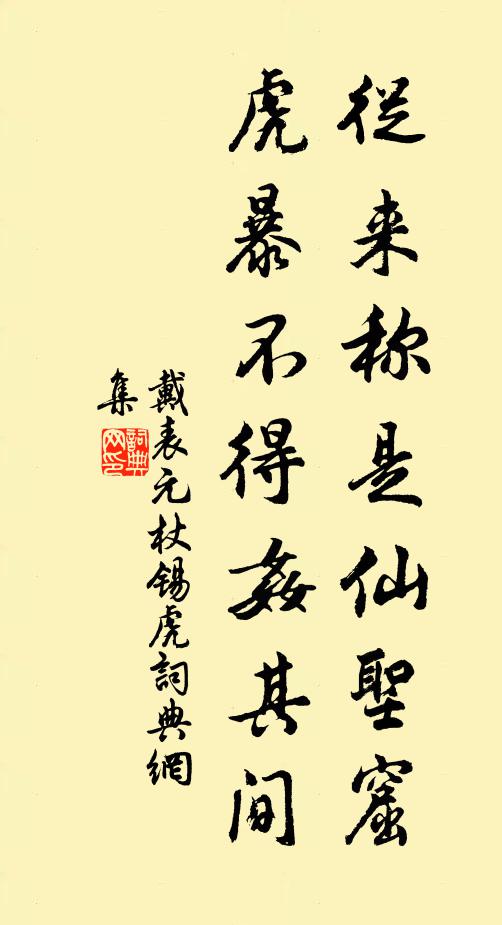 從来称是仙聖窟
虎暴不得姦其間
戴表元杖锡虎詞典網
集
詞典
网印